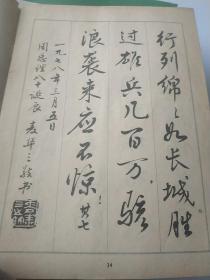 行列绵〻如长城胜
过雄兵几百万骇
浪袭来应不惊！其七
一九七八年三月五日
周总理八十诞辰
麦华三敬书
14